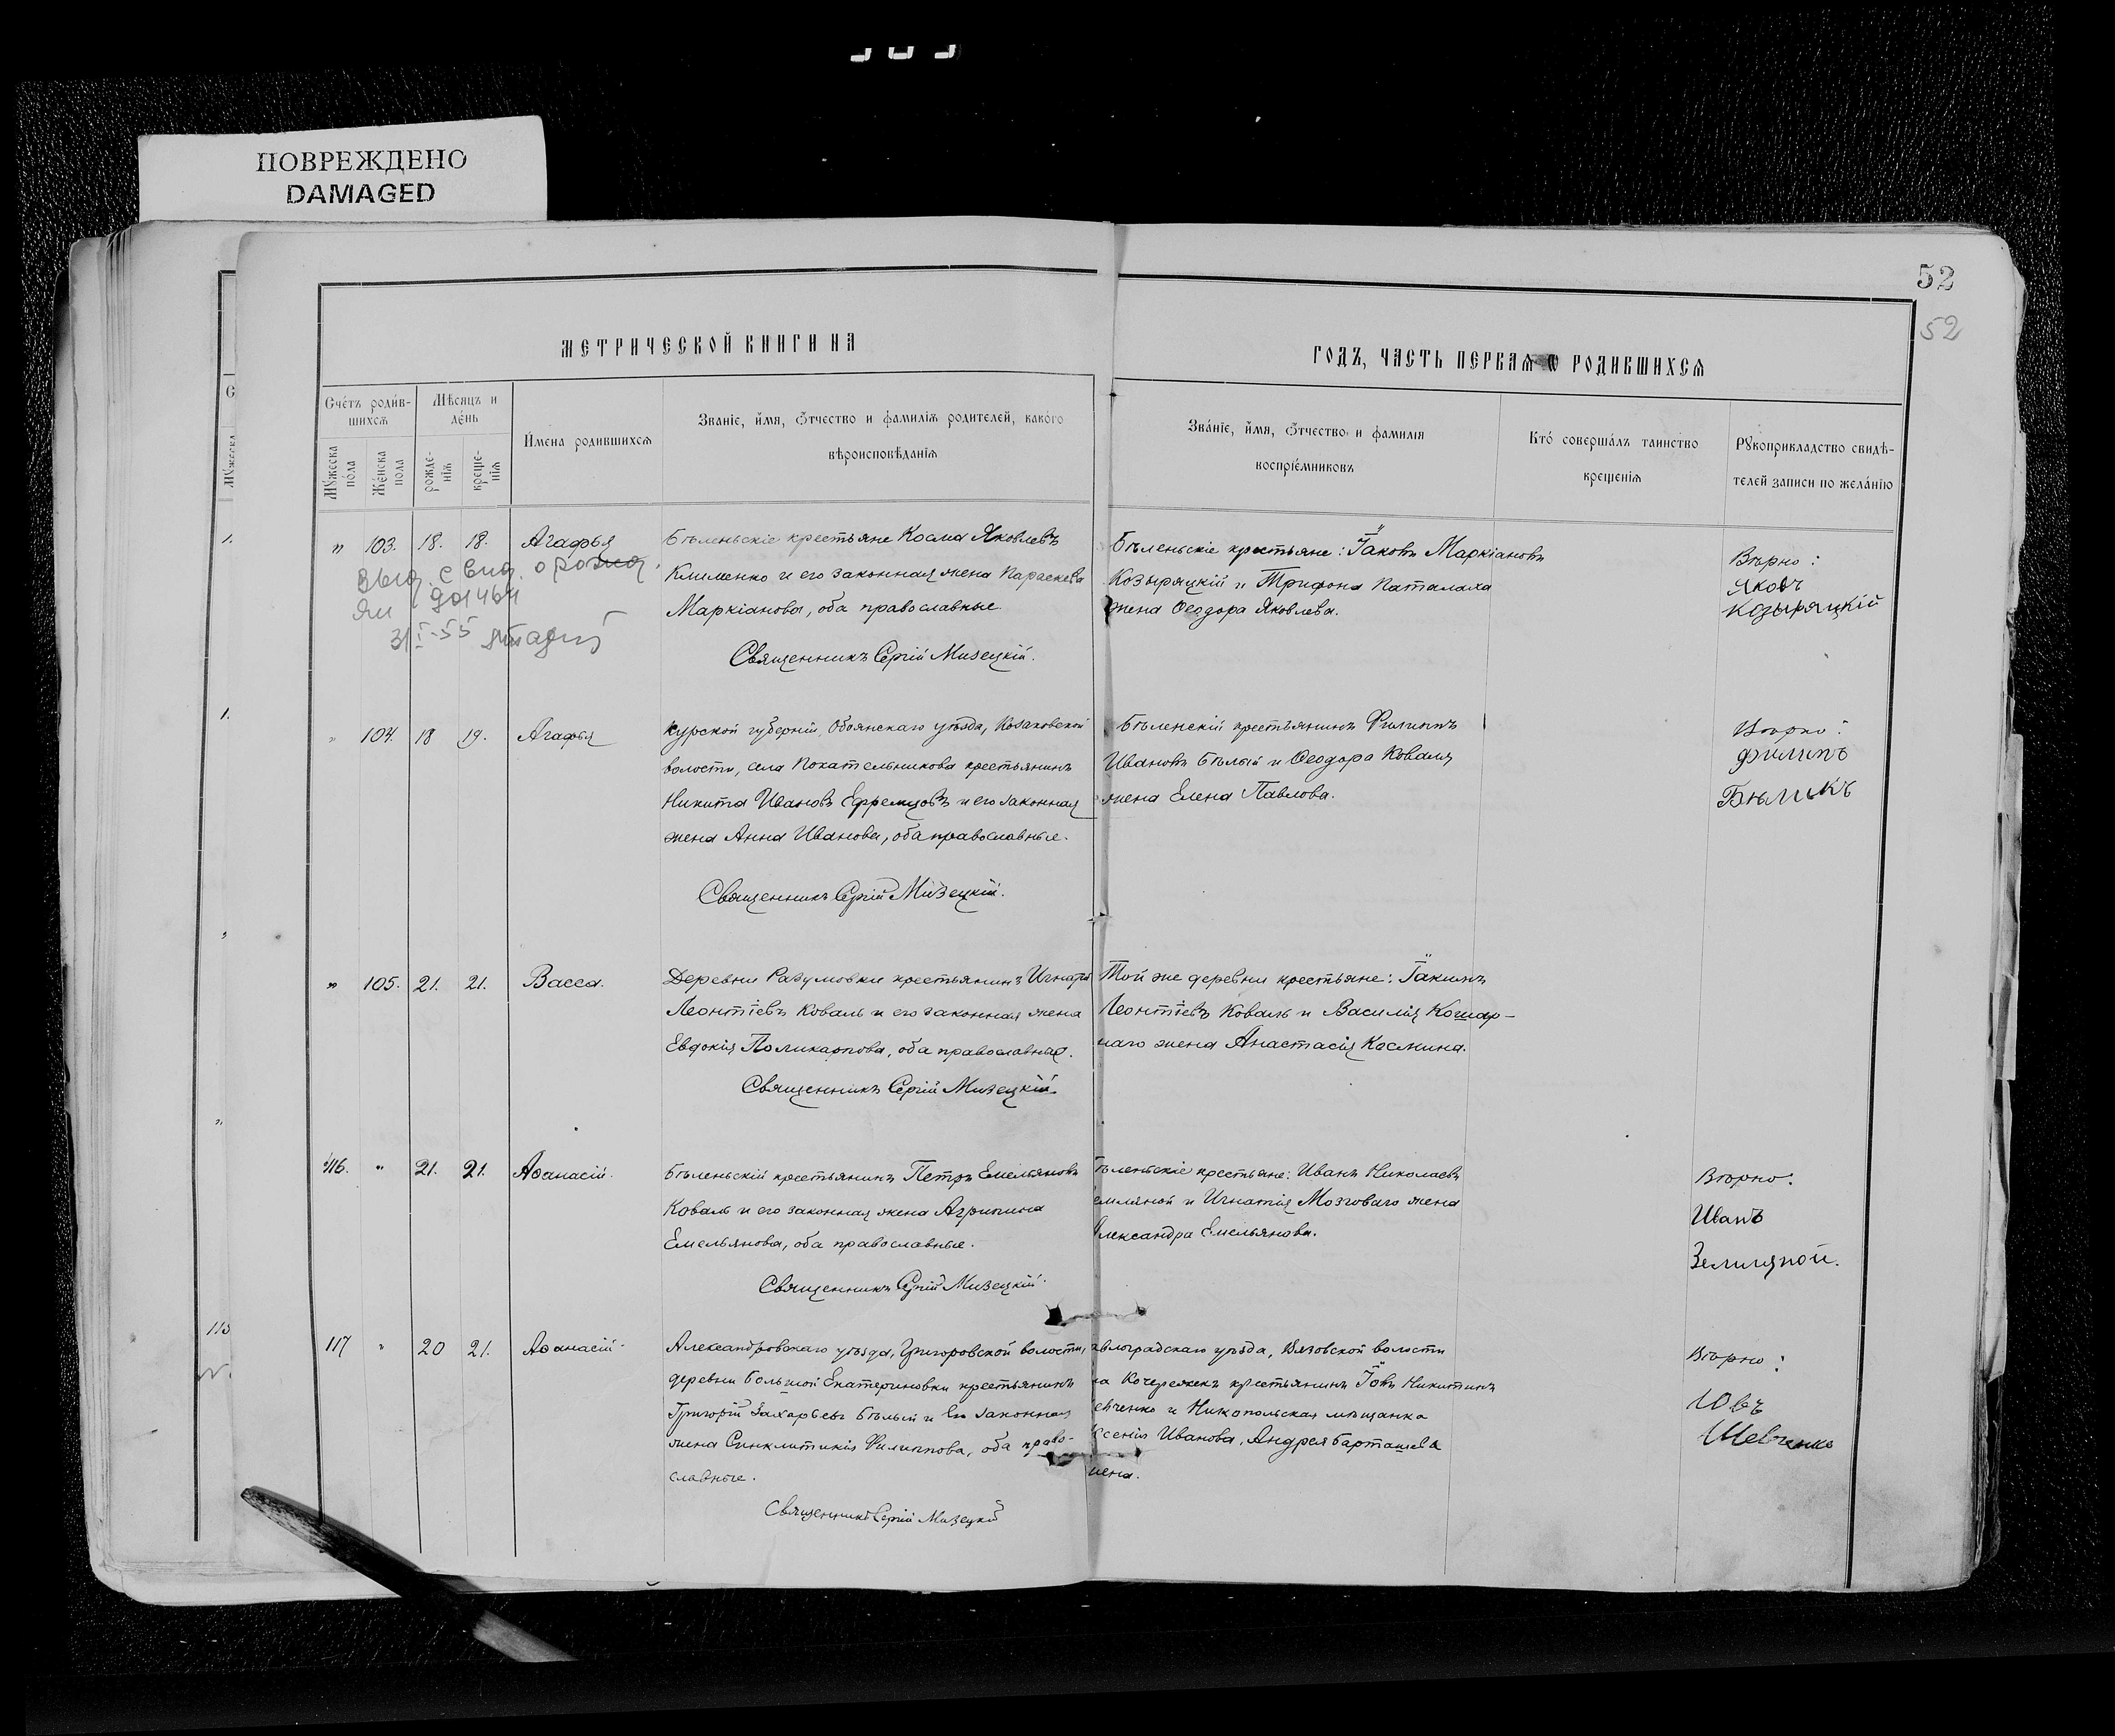 ПОВРЕЖДЕНО
DAMAGED
52
52
МЕТРИЧЕСКОЙ КНИГИ НА
ГОДЪ, ЧАСТЬ ПЕРВАѦ Ѡ РОДИВШИХСѦ
Счетъ родившихсѧ
Мѣсяцъ и день
Имена родившихсѧ
Званіе, имя, отчество и фамиліѧ родителей, какого вѣроисповѣданіѧ
Званіе, имя, отчество и фамилія воспріемниковъ
Кто совершалъ таинство крещенія
Рꙋкоприкладство свидѣтелей записи по желанію
Мꙋжеска пола
Женска пола
рожденіѧ
крещеніѧ
" 103. 18. 18. Агафья
Бѣленьскіе крестьяне Косма Яковлевъ
Клименко и его законная жена Параскева
Маркіанова, оба православные
Священникъ Сергій Мизецкій.
Бѣленьскіе крестьяне: Іаковъ Маркіановъ
Козыряцкій и Трифона Паталаха
жена Ѳеодора Яковлева.
Вѣрно:
Яковъ
Козыряцкій
" 104. 18 19. Агафья
Курской губерніи, Обоянскаго уѣзда, Казаковской
волости, села Покательникова крестьянинъ
Никита Ивановъ Ефремцовъ и его законная
жена Анна Иванова, оба православные.
Священникъ Сергій Мизецкій.
Бѣленскій крестьянинъ Филиппъ
Ивановъ Бѣлый и Ѳеодора Коваля
жена Елена Павлова.
Вѣрно:
Филипъ
Бѣликъ
" 105. 21. 21. Васса.
Деревни Разумовки крестьянинъ Игнатій
Леонтіевъ Коваль и его законная жена
Евдокія Поликарпова, оба православные.
Священникъ Сергій Мизецкій
Той же деревни крестьяне: Іакимъ
Леонтіевъ Коваль и Василія Кошар-
наго жена Анастасія Космина.
116. " 21. 21. Аѳанасій.
Бѣленьскій крестьянинъ Петръ Емельяновъ
Коваль и его законная жена Агрипина
Емельянова, оба православные.
Священникъ Сергій Мизецкій.
ѣленьскіе крестьяне: Иванъ Николаевъ
емляной и Игнатія Мозговаго жена
лександра Емельянова.
Вѣрно:
Иванъ
Землцной.
117 " 20 21. Аѳанасій
Александровскаго уѣзда, Григоровской волости,
деревни Большой Екатериновки крестьянинъ
Григорій Захарьевъ Бѣлый и его законная
жена Синклитикія Филиппова, оба право-
славные.
Священникъ Сергій Мизецкій
авлоградскаго уѣзда, Вязовской волости
ла Кочережекъ крестьянинъ Іовъ Никитинъ
евченко и Никопольская мѣщанка
ксенія Иванова, Андрея Барташева
жена.
Вѣрно:
Іовъ
Шевченко